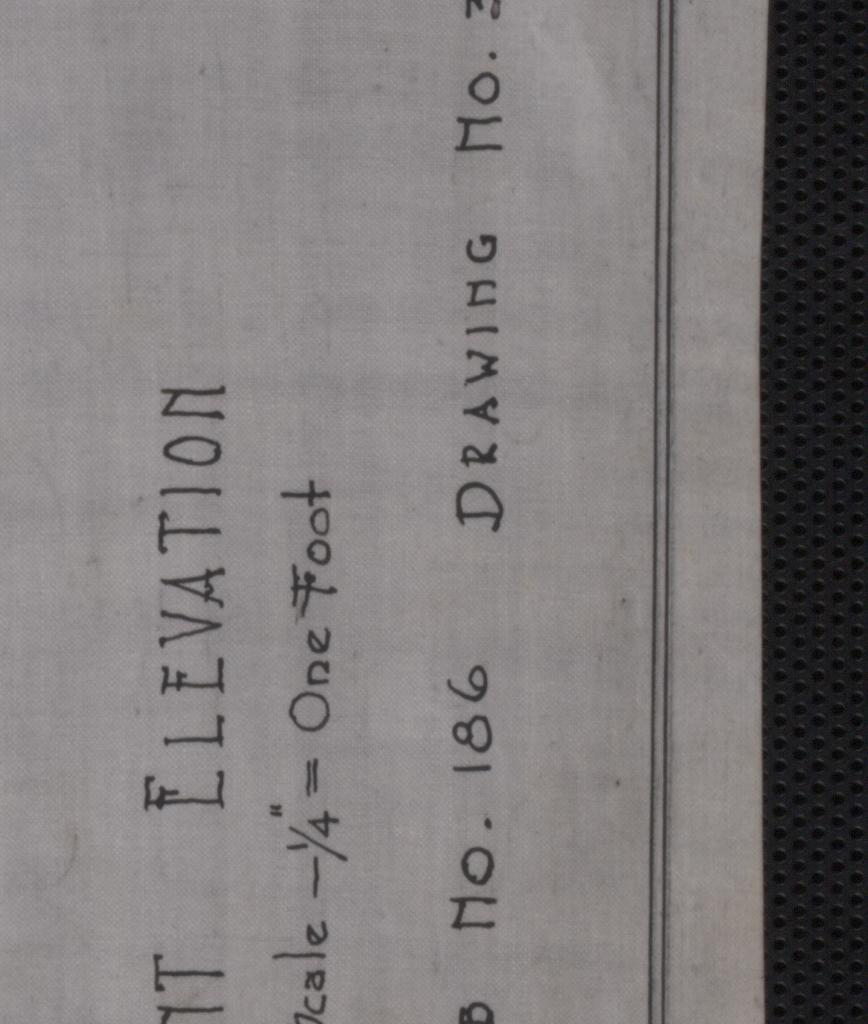 NT ELEVATION
Scale - 1/4" = One Foot
B No. 186 DRAWING No.